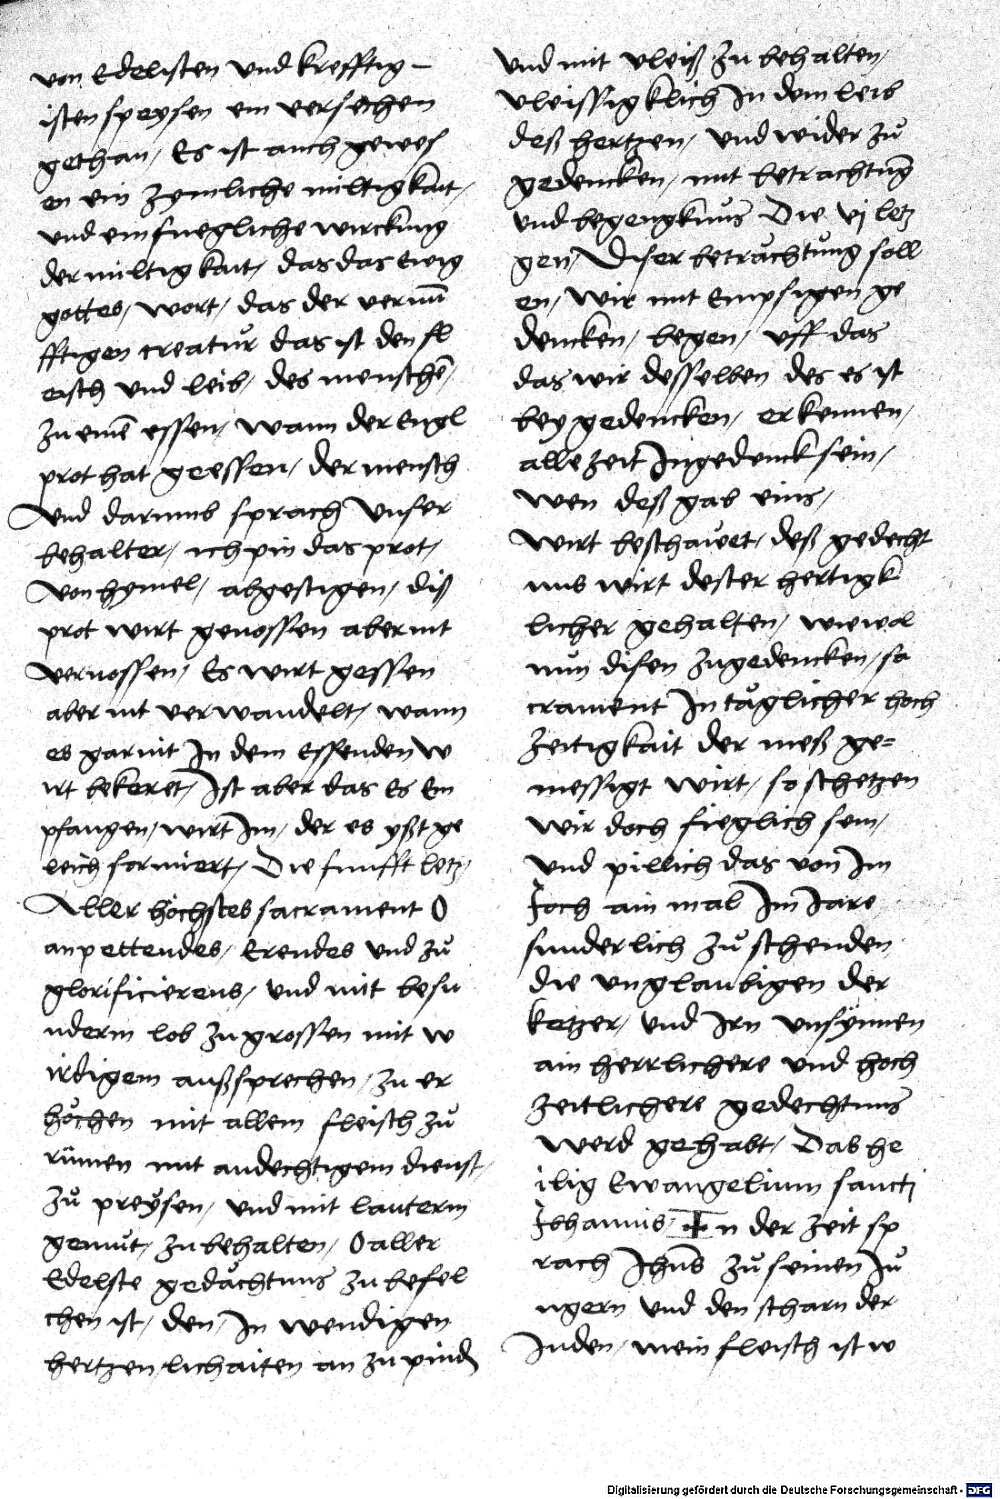 von Edelisten vnd krefftig –
isten speysen ein versechen
gethan / Es ist auch gewes
en ein zymliche miltigkait /
vnd ein fuegliche wirckung
der miltigkait / das das Ewig
gottes / wort / das der vernu̅
fftigen creatur das ist den fl
eisch vnd leib / des mensche̅ /
zu eine̅ essen / wann der Engl
prot hat geessen / der mensch
Vnd darumb sprach Vnser
behalter / ich pin das prot /
Von hymel / abgestigen / diß
prot wirt genossen aber nit
vernossen / Es wirt gessen
aber nit verwandelt / wann
es gar nit In dem Essenden w
irt bekeret / Ist aber das Es Em
pfangen / wirt Im / der es yßt ge
leich formiert / Die funfft letz /
Aller höchstes sacrament O
anpettendes / Erendes vnd zů
glorificierens / vnd mit besu
nderm lob zu grossen mit w
irdigem außsprechen / zu er
höchen mit allem fleisch zů
rümen mit andechtigem dienst /
zů preÿsen / vnd mit lauterm
gemüt / zu behalten / O aller
Edelste gedächtnus zu befel
chen ist / den / In wendigen
hertzen lichaiten an zu pinden
vnd mit vleiß zu behalten /
vleissigklich In dem leib
deß hertzen / vnd wider zů
gedencken / mit betrachtung
vnd begengknus Die vj letz
gen / Diser betrachtung soll
en / wir mit Empsigen ge
dencken / begen / vff das
das wir desselben des es ist
bey gedencken / erkennen /
alle zeit Ingedenck sein /
wen deß gab eins /
wirt beschawet / deß gedecht
nus wirt dester hertigk
licher gehalten / wiewol
nun disen zugedencken / sa
crament In täglicher hoch
zeitigkait der meß ge=
messigt wirt / so schetzen
wir doch fieglich sein /
vnd pillich das von Im
Joch ain mal Im Jare
sunderlich zů schenden
die vnglaubigen der
ketzer / vnd Irn vnsÿnnen
ain herrlichere vnd hoch
zeitlichere gedechtnus
werd gehabt / Das he
ilig Ewangelium sancti
Johannis / In der zeit sp
rach Jhus zů seinen Jů
ngern vnd den scharn der
Juden / mein fleisch ist w
Digitalisierung gefördert durch die Deutsche Forschungsgemeinschaft - DFG